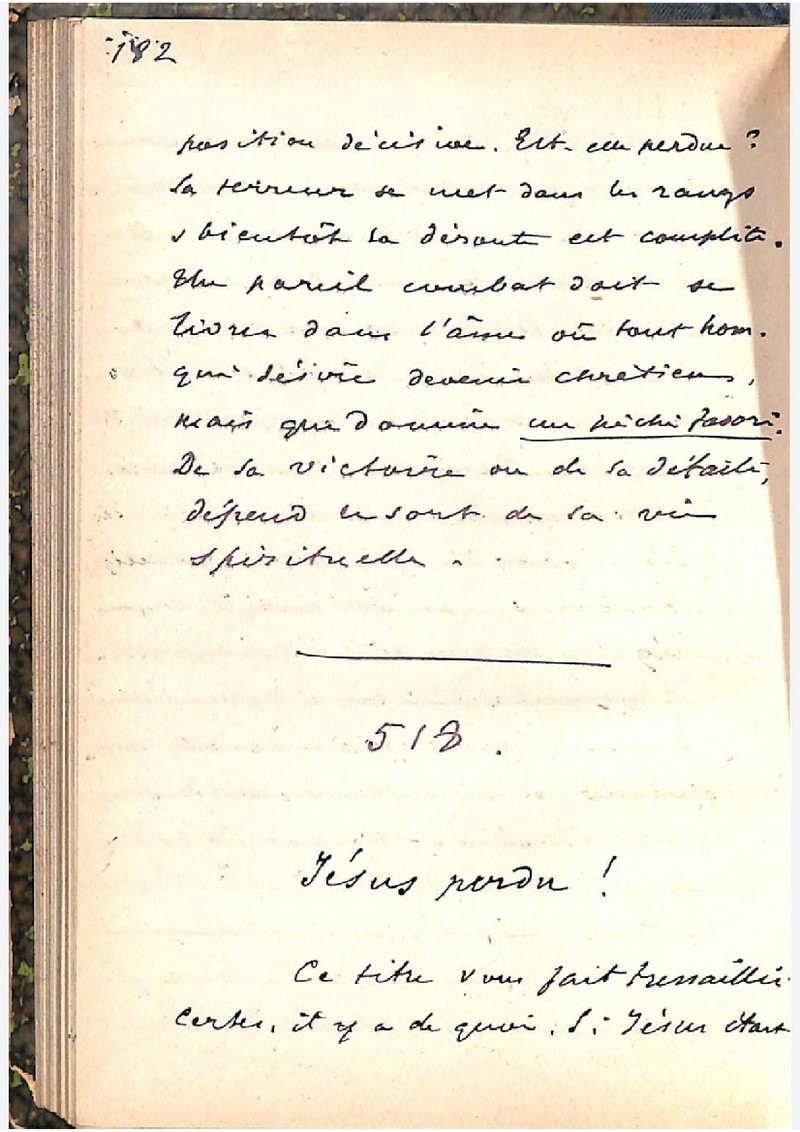 182
position décisive. Est-elle perdue ?
la terreur se met dans les rangs
& bientôt la déroute est complète.
Un pareil combat doit se
livrer dans l'âme où tout hom.
qui désire devenir chrétien,
mais que domine un péché favori.
De sa victoire ou de sa défaite,
dépend le sort de sa vie
spirituelle.
518.
Jésus perdu !
Ce titre vous fait tressaillir
Certes, il y a de quoi. Si Jésus était